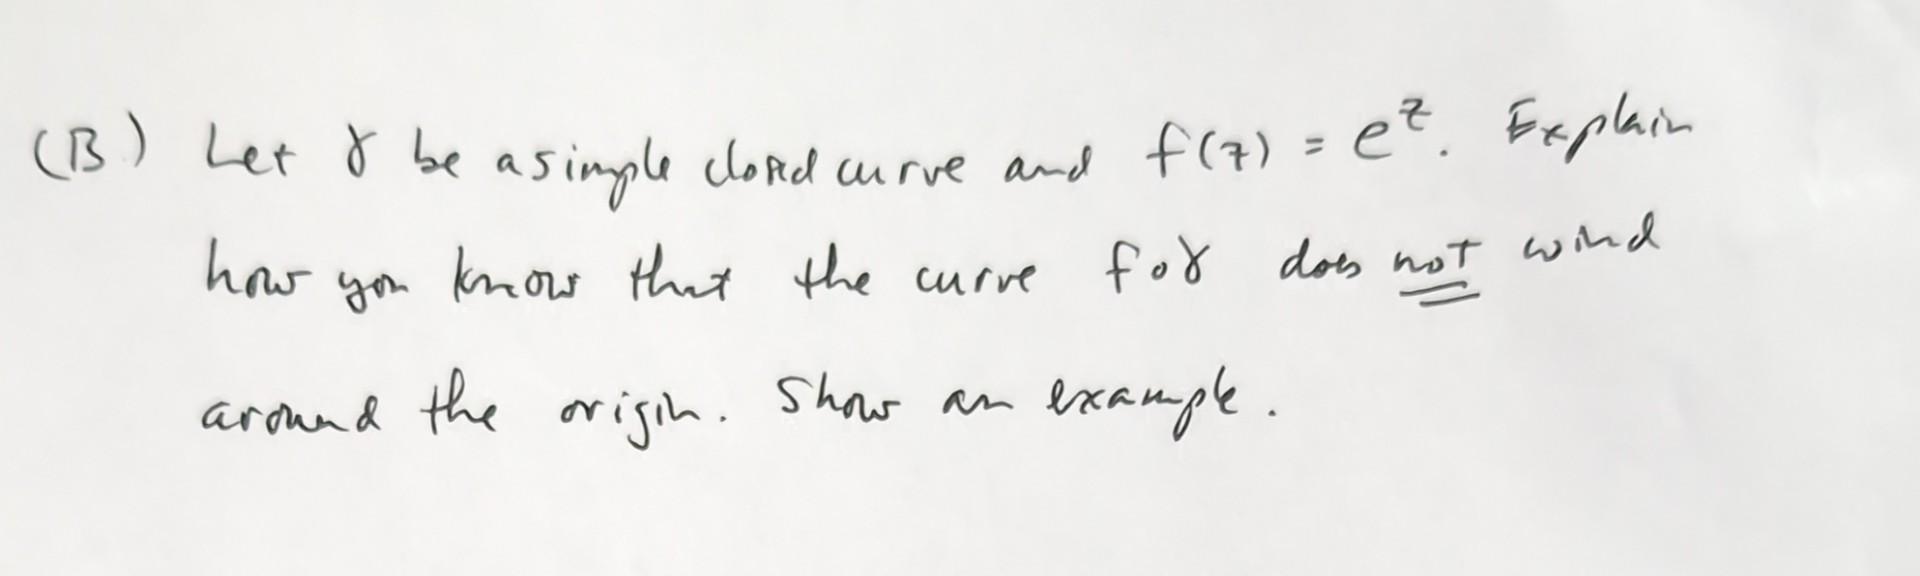 (B) Let γ be a simple closed curve and f(z) = e^z. Explain
how you know that the curve f∘γ does not wind
around the origin. Show an example.